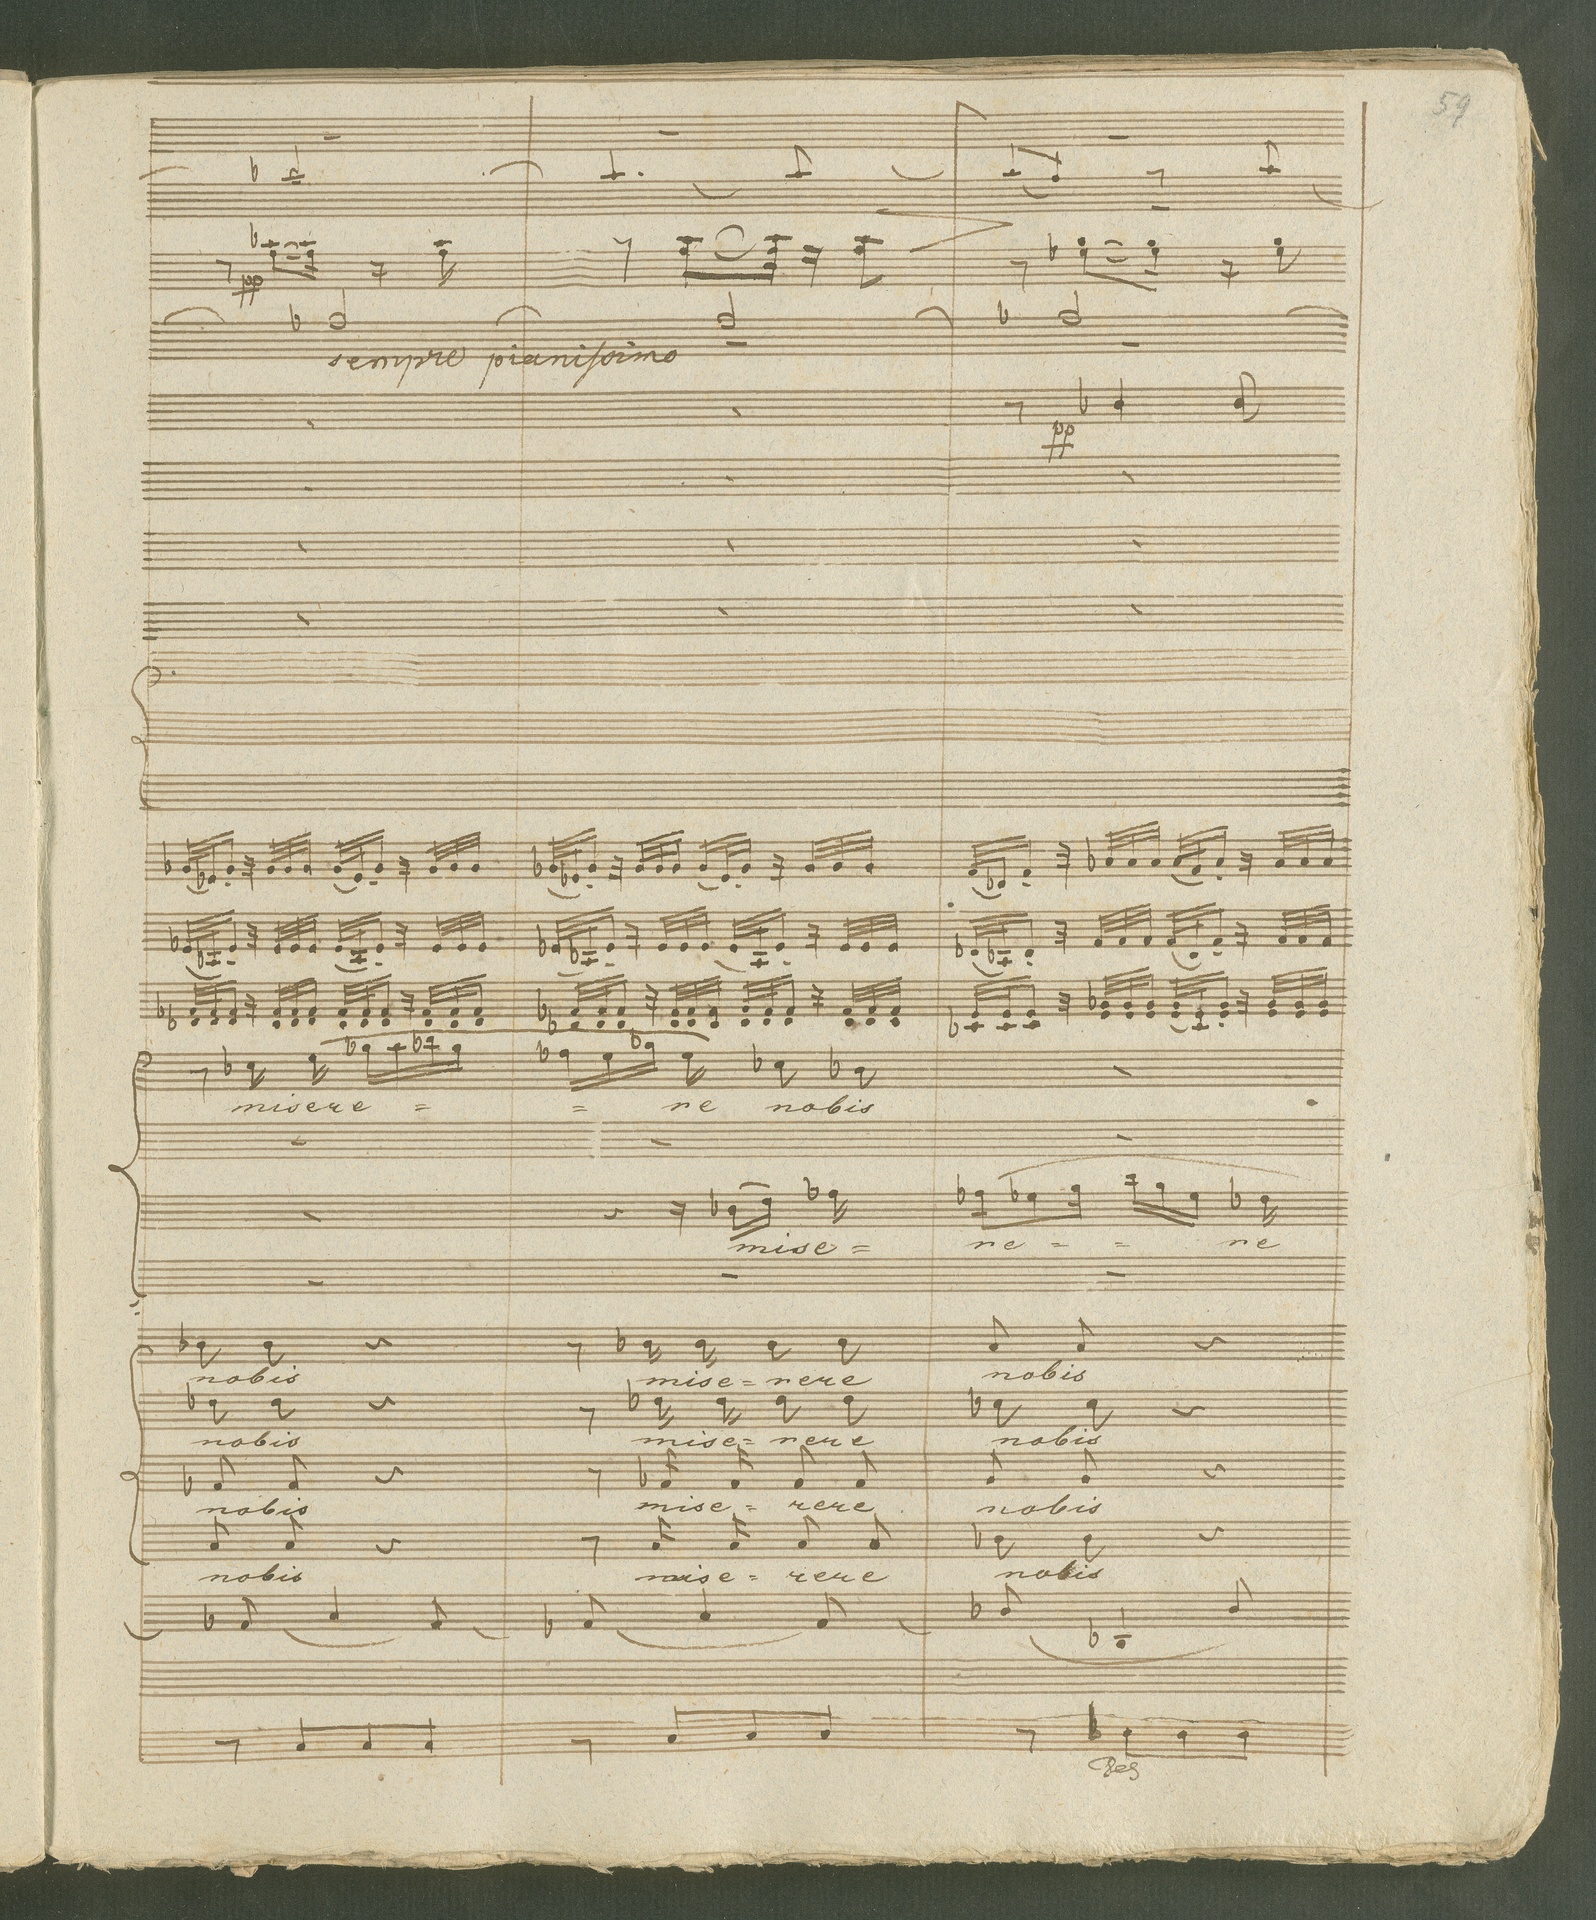 59
pp
sempre pianissimo
pp
misere = = re nobis
mise = re = = re
nobis mise = rere nobis
nobis mise = rere nobis
nobis mise = rere nobis
nobis mise = rere nobis